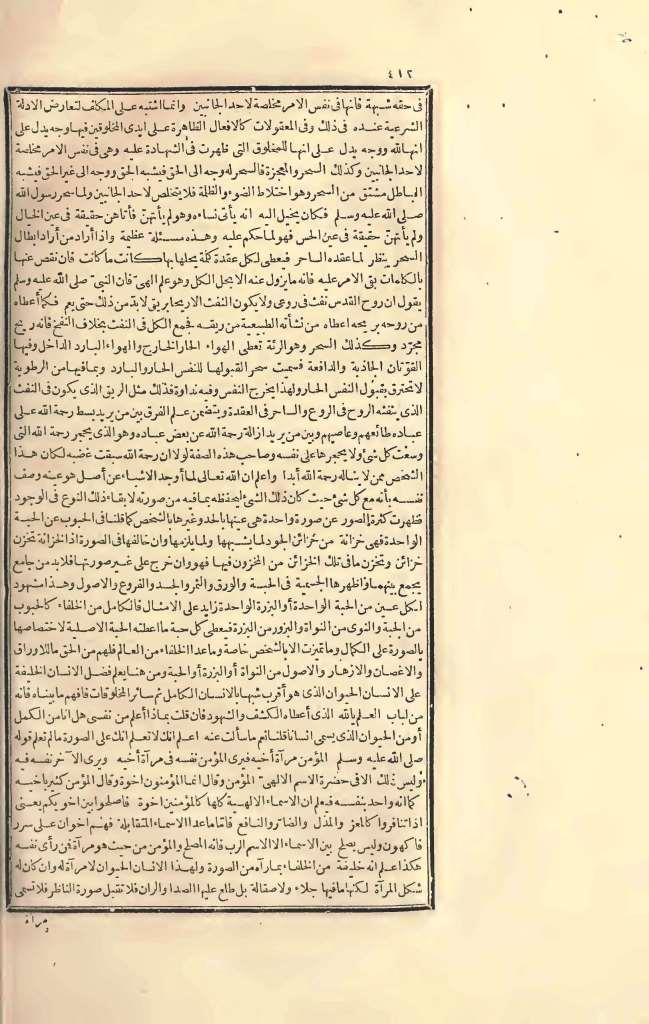 ٤١٢
فى حقه شبهة فانها فى نفس الامر مخلصة لاحد الجانبين وانما اشتبه على المكلف لتعارض الادلة
الشرعية عنده فى ذلك وفى المعقولات كالافعال الظاهرة على ايدى المخلوقين فيها وجه يدل على
انها لله ووجه يدل على انها للمخلوق التى ظهرت فى الشهادة عليه وهى فى نفس الامر مخلصة
لاحد الجانبين وكذلك السحر والمعجزة فالسحر له وجه الى الحق فيشبه الحق ووجه الى غير الحق فيشبه
الباطل مشتق من السحر وهو اختلاط الضوء والظلمة فلا يتخلص لاحد الجانبين ولما سحر رسول الله
صلى الله عليه وسلم فكان يخيل اليه انه يأتى نساءه وهو لم يأتهن فأتاهن حقيقة فى عين الخيال
ولم يأتهن حقيقة فى عين الحس فهو لما حكم عليه وهذه مسئلة عظيمة واذا أراد من أراد ابطال
السحر ينظر لما عقده الساحر فيعطى لكل عقدة كلمة يحلها بها كانت ما كانت فان نقص عنها
بالكلمات بقى الامر عليه فانه ما يزول عنه الا بحل الكل وهو علم الهى فان النبى صلى الله عليه وسلم
يقول ان روح القدس نفث فى روعى ولا يكون النفث الا ريحا بريق لابد من ذلك حتى يعم فكما أعطاه
من روحه بريحه اعطاه من نشأته الطبيعية من ريقه فجمع الكل فى النفث بخلاف النفخ فانه ريح
مجرد وكذلك السحر وهو الرئة تعطى الهواء الحار الخارج والهواء البارد الداخل وفيها
القوتان الجاذبة والدافعة فسميت سحر القبولها للنفس الحار والبارد وبما فيها من الرطوبة
لا تحترق بقبول النفس الحار ولهذا يخرج النفس وفيه نداوة فذلك مثل الريق الذى يكون فى النفث
الذى ينفثه الروح فى الروع والساحر فى العقدة ويتضمن علم الفرق بين من يريد بسط رحمة الله على
عباده طائعهم وعاصيهم وبين من يريد ازالة رحمة الله عن بعض عباده وهو الذى يحجر رحمة الله التى
وسعت كل شئ ولا يحجرها على نفسه وصاحب هذه الصفة لولا ان رحمة الله سبقت غضبه لكان هذا
الشخص ممن لا يناله رحمة الله أبدا واعلم ان الله تعالى لما أوجد الاشياء عن أصل هو عينه وصف
نفسه بأنه مع كل شئ حيث كان ذلك الشئ ليحفظه بما فيه من صورته لابقاء ذلك النوع فى الوجود
فظهرت كثرة الصور عن صورة واحدة هى عينها بالحد وغيرها بالشخص كما قلنا فى الحبوب عن الحبة
الواحدة فهى خزانة من خزائن الجود لما يشبهها ولما يلزمها وان خالفها فى الصورة اذ الخزانة تخزن
خزائن وتخزن ما فى تلك الخزائن من المخزون فيها فهو وان خرج على غير صورتها فلا بد من جامع
يجمع بينهما وأظهرها الجسمية فى الحبة والورق والثمر والجسد والفروع والاصول وهذا مشهود
لكل عين من الحبة الواحدة أو البزرة الواحدة زايد على الامثال فالكامل من الخلفاء كالحبوب
من الحبة والنوى من النواة والبزور من البزرة فيعطى كل حبة ما اعطته الحبة الاصلية لاختصاصها
بالصورة على الكمال وما تميزت الا بالشخص خاصة وما عدا الخلفاء من العالم فلهم من الحق ما للاوراق
والاغصان والازهار والاصول من النواة أو البزرة أو الحبة ومن هنا يعلم فضل الانسان الخليفة
على الانسان الحيوان الذى هو أقرب شبها بالانسان الكامل ثم سائر المخلوقات فافهم ما بيناه فانه
من لباب العلم بالله الذى أعطاه الكشف والشهود فان قلت بماذا أعلم من نفسى هل انا من الكمل
أو من الحيوان الذى يسمى انسانا قلنا نعم ما سألت عنه اعلم انك لا تعلم انك على الصورة ما لم تعلم قوله
صلى الله عليه وسلم المؤمن مرآة أخيه فيرى المؤمن نفسه فى مرآة أخيه ويرى الآخر نفسه فيه
وليس ذلك الا فى حضرة الاسم الالهى المؤمن وقال انما المؤمنون اخوة وقال المؤمن كثير باخيه
كما انه واحد بنفسه فيعلم ان الاسماء الالهية كلها كالمؤمنين اخوة فاصلحوا بين اخويكم يعنى
اذا تنافروا كالمعز والمذل والضار والنافع فأما ما عدا الاسماء المتقابلة فهم اخوان على سرر
فاكهون وليس يصلح بين الاسماء الا الاسم الرب فانه المصلح والمؤمن من حيث هو مرآة فمن رأى نفسه
هكذا علم انه خليفة من الخلفاء بما رآه من الصورة ولهذا الانسان الحيوان لا مرآة له وان كان له
شكل المرآة لكنها ما فيها جلاء ولا صقالة بل طلع عليها الصدا والران فلا تقبل صورة الناظر فلا تسمى
مرآة